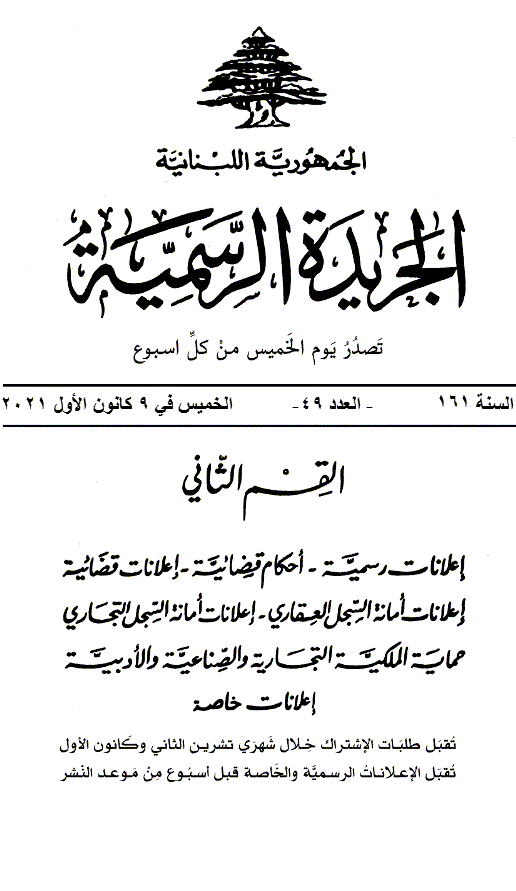 الجمهوريَّة اللبْنانيَّة
الجَريدَة الرسَّميَّة
تَصدُرُ يَوم الخَميس منْ كلِّ اسبوع
السنة ١٦١ - العدد ٤٩- الخميس في ٩ كانون الأول ٢٠٢١
القِسْم الثّاني
إعلانات رسميَّة - أحكام قضائيَّة - إعلانات قضائية
إعلانات أمانة السِّجل العِقاري - إعلانات أمانة السِّجل التجَاري
حماية الملكيَّة التجَارية والصِّناعيَّة والأدبيَّة
إعلانات خاصة
تُقبَل طلبَات الإشتراك خِلال شَهرَي تشرين الثاني وكَانون الأول
تُقبَل الإعلاناتُ الرسميَّة والخَاصة قبل أسبُوع مِنْ مَوعد النَشر